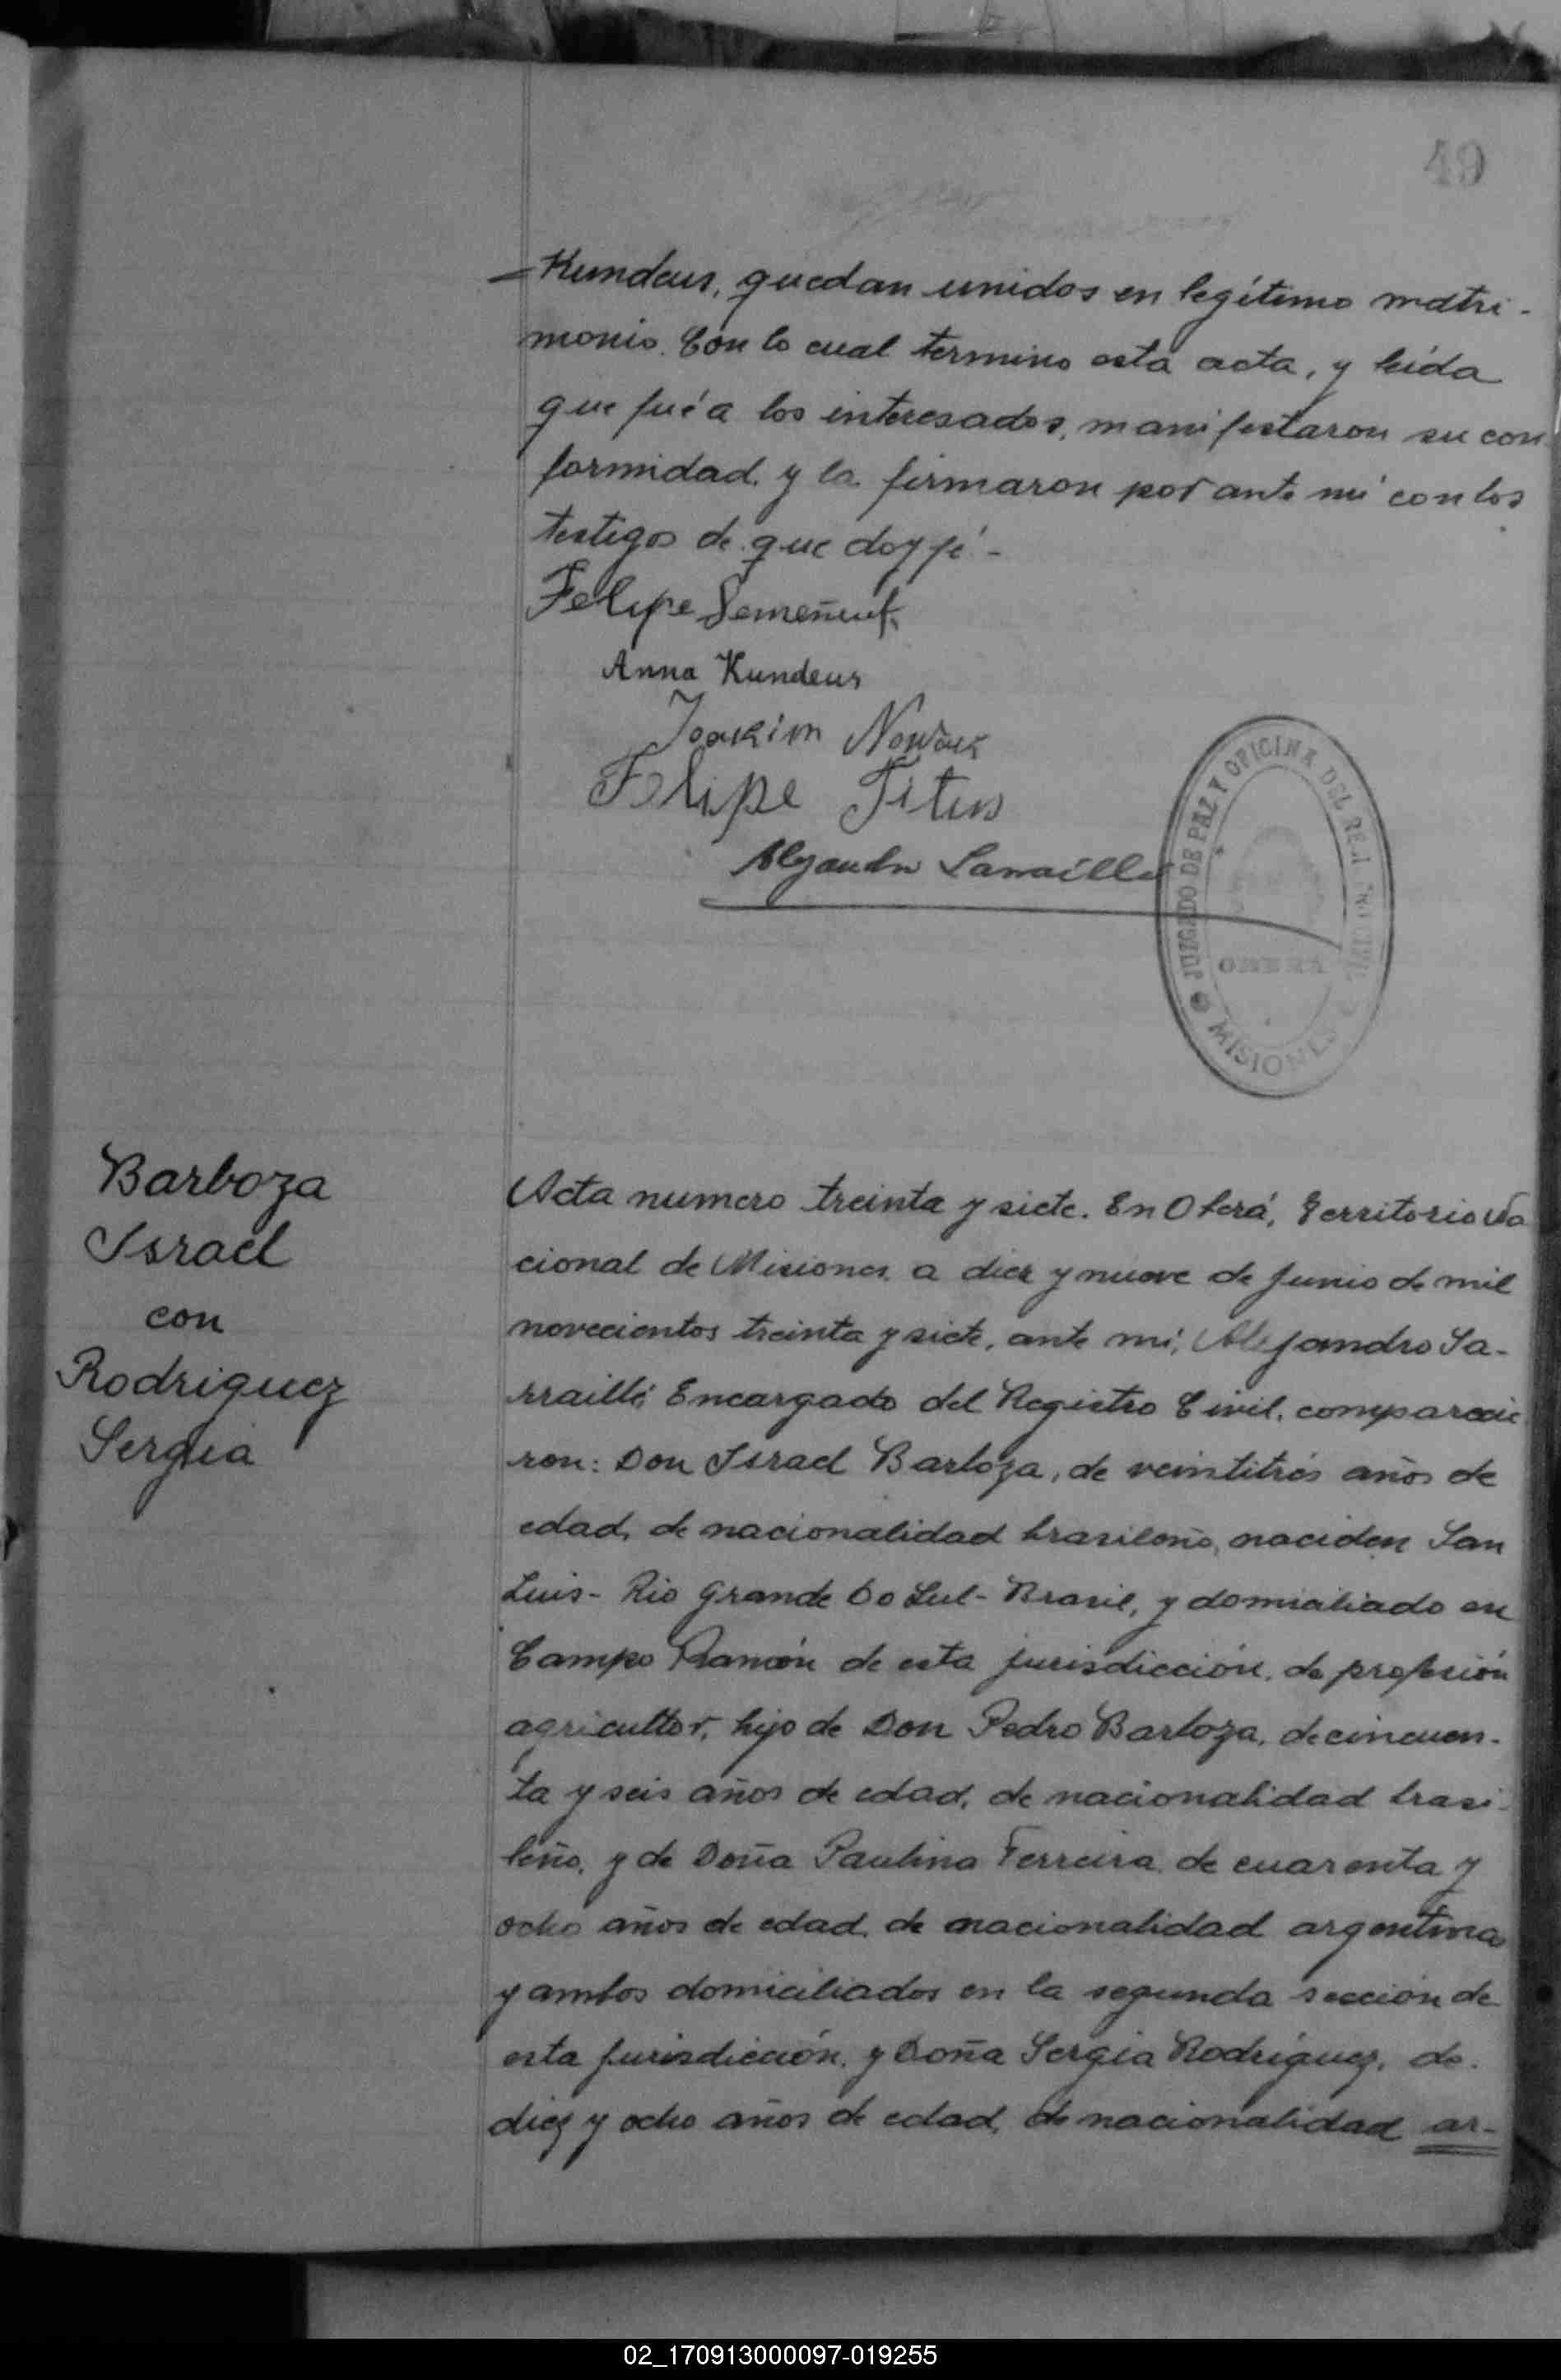 49
Kundeus, quedan unidos en legítimo matri-
monio. Con lo cual termino esta acta, y leída
que fué a los interesados, manifestaron su con
formidad y la firmaron por ante mi con los
testigos de que doy fé.-
Felipe
Anna Kundeus
Joakim Nowak
Felipe Titus
Alejandro Sarraillé
JUZGADO DE PAZ Y OFICINA DEL REGISTRO CIVIL
OBERÁ
MISIONES
Barboza
Israel
con
Rodriguez
Sergia
Acta numero treinta y siete. En Oberá, Territorio Na
cional de Misiones, a diez y nueve de Junio de mil
novecientos treinta y siete, ante mi, Alejandro Sa-
rraillé, Encargado del Registro Civil, comparecie
ron: Don Israel Barboza, de veintitrés años de
edad, de nacionalidad brasileño, nacido en San
Luis - Rio Grande Do Sul - Brasil, y domiciliado en
Campo Ramón de esta jurisdicción, de profesión
agricultor, hijo de Don Pedro Barboza, de cincuen-
ta y seis años de edad, de nacionalidad brasi-
leño, y de Doña Paulina Ferreira de cuarenta y
ocho años de edad, de nacionalidad argentina
y ambos domiciliados en la segunda sección de
esta jurisdicción, y Doña Sergia Rodríguez, de
diez y ocho años de edad, de nacionalidad ar-
02_170913000097-019255